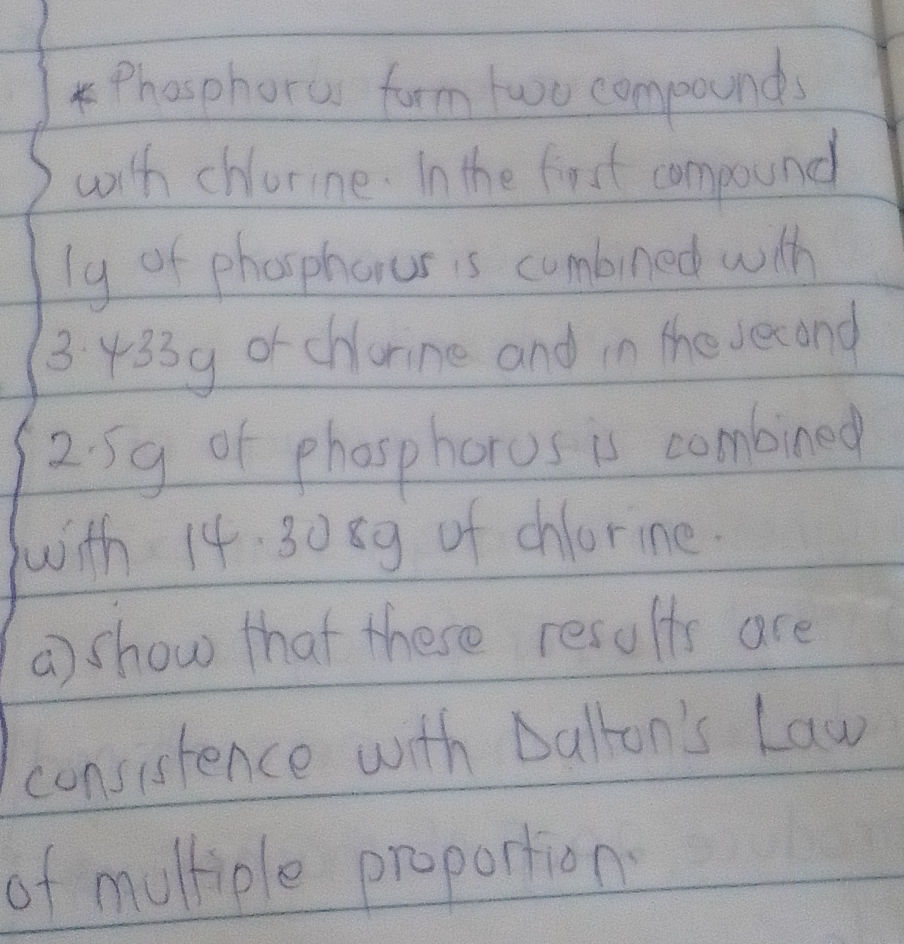 * Phosphorus form two compounds
with chlorine. In the first compound
1g of phosphorus is combined with
3.433g of chlorine and in the second
2.5g of phosphorus is combined
with 14.308g of chlorine.
a) show that these results are
consistence with Dalton's Law
of multiple proportion.